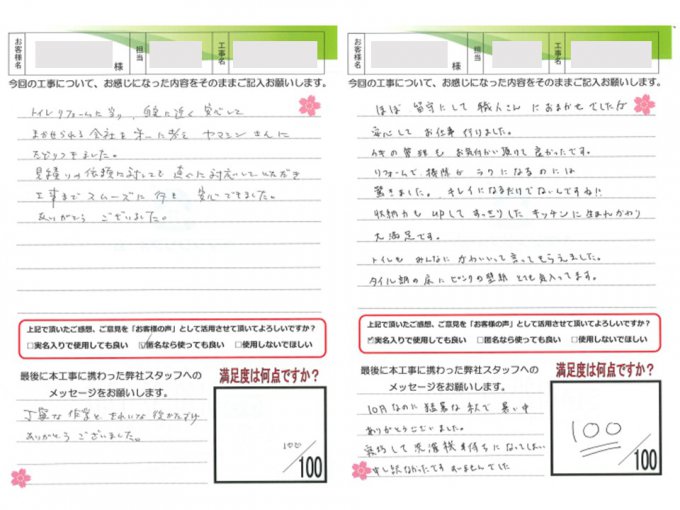 お客様名
様
担当
工事名
今回の工事について、お感じになった内容をそのままご記入お願いします。
トイレリフォームに当り、自宅に近く安心して
まかせられる会社を求めた所を ヤマシン さんに
たどりつきました。
見積りの依頼に対しても速くに対応していただき
工事までスムーズに行き 安心できました。
ありがとう ございました。
上記で頂いたご感想、ご意見を「お客様の声」として活用させて頂いてよろしいですか？
□実名入りで使用しても良い ☑匿名なら使っても良い □使用しないでほしい
最後に本工事に携わった弊社スタッフへの
メッセージをお願いします。
丁寧な作業と、きれいな後かたづけ
ありがとう ございました。
満足度は何点ですか？
100
/100
お客様名
様
担当
工事名
今回の工事について、お感じになった内容をそのままご記入お願いします。
ほぼ 留守にして 職人さん におまかせでしたが
安心して お仕事 行けました。
カギの管理も お気付かい頂けて良かったです。
リフォームで、掃除が ラクになるのには
驚きました。 キレイになるだけでないんですね!!
収納力も UPして すっきりした キッチンに生まれかわり
大満足です。
トイレも みんなに かわいいって言ってもらえました。
タイル調の床に ピンクの壁紙 とても気に入ってます。
上記で頂いたご感想、ご意見を「お客様の声」として活用させて頂いてよろしいですか？
☑実名入りで使用しても良い □匿名なら使っても良い □使用しないでほしい
最後に本工事に携わった弊社スタッフへの
メッセージをお願いします。
10月なのに 猛暑な秋で 暑い中
ありがとうございました。
洗濯機 待ちに なってしまい
申し訳なかったです すーませんでした
満足度は何点ですか？
100
/100